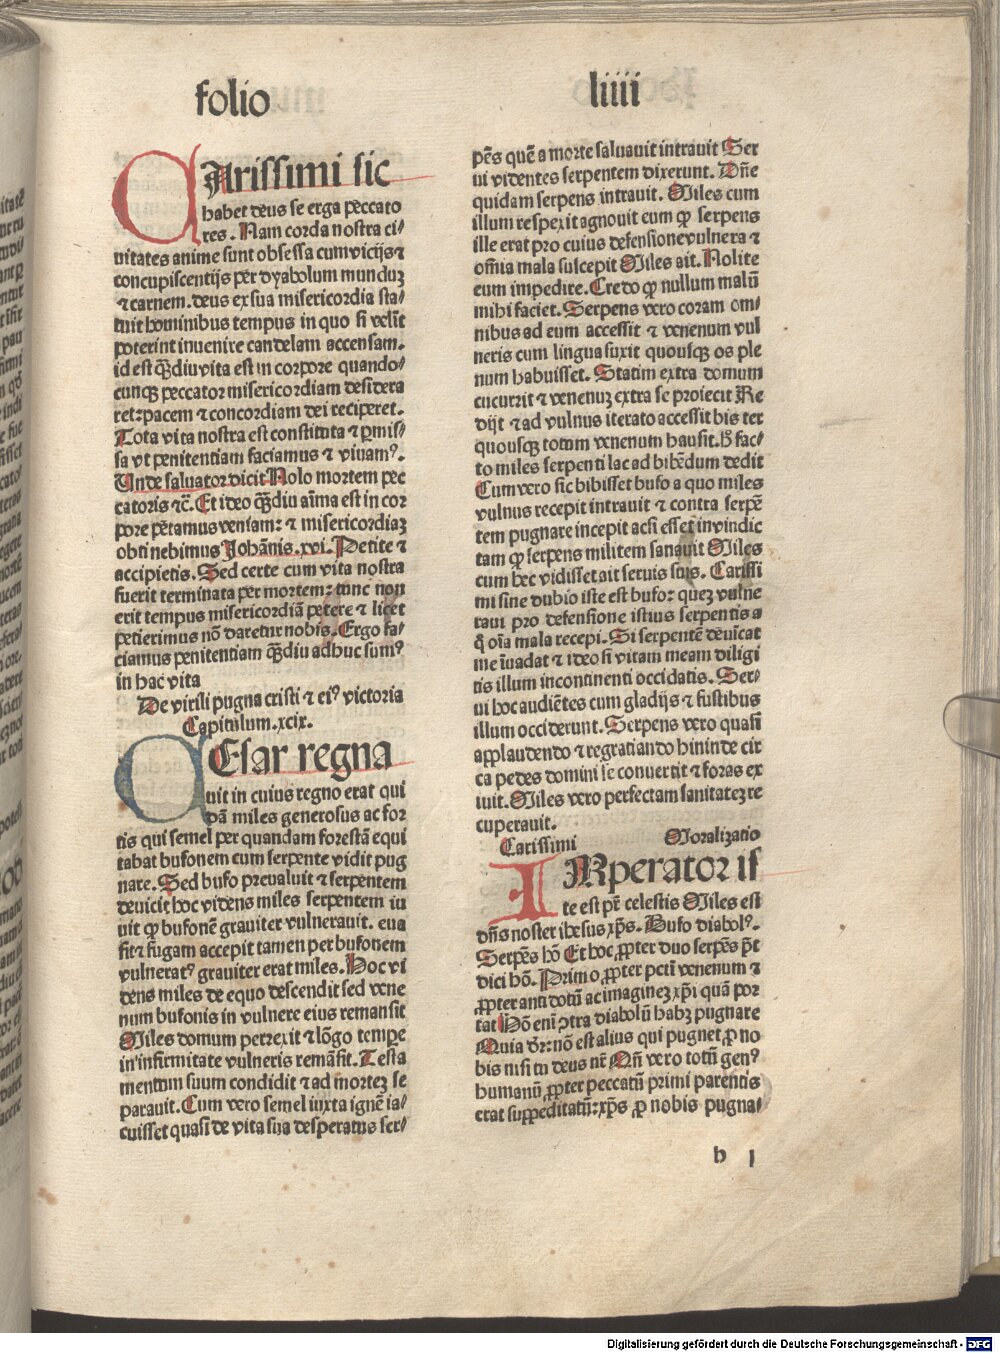 folio liiii
CArissimi sic
habet deus se erga peccato
res. Nam corda nostra ci/
uitates anime sunt obsessa cum vicijs ⁊
concupiscentijs per dyabolum munduʒ
⁊ carnem. deus ex sua misericordia sta/
tuit hominibus tempus in quo si velīt
poterint inuenire candelam accensam.
id est qȝdiu vita est in corpore quando/
cunqȝ peccator misericordiam desidera
ret: pacem ⁊ concordiam dei reciperet.
Tota vita nostra est constituta ⁊ ꝑmis/
sa vt penitentiam faciamus ⁊ viuamꝰ.
Unde saluator dicit Nolo mortem pec
catoris ⁊c̄. Et ideo qȝdiu aīma est in cor
pore petamus veniam: ⁊ misericordiaȝ
obtinebimus Johānis. xvi. Petite ⁊
accipietis. Sed certe cum vita nostra
fuerit terminata per mortem: tunc non
erit tempus misericordiā petere ⁊ licet
petierimus nō daretur nobis. Ergo fa/
ciamus penitentiam qȝdiu adhuc sumꝰ
in hac vita
De virili pugna cristi ⁊ eiꝰ victoria
Capitulum. xcix.
CEsar regna
uit in cuius regno erat qui
dā miles generosus ac for
tis qui semel per quandam forestā equi
tabat bufonem cum serpente vidit pug
nare. Sed bufo preualuit ⁊ serpentem
deuicit hoc videns miles serpentem iu
uit ꝙ bufonē grauiter vulnerauit. eua
sit ⁊ fugam accepit tamen per bufonem
vulneratꝰ grauiter erat miles. Hoc vi
dens miles de equo descendit sed vene
num bufonis in vulnere eius remansit
Miles domum perrexit ⁊ lōgo tempe
in infirmitate vulneris remāsit. Testa
mentum suum condidit ⁊ ad morteȝ se
parauit. Cum vero semel iuxta ignē ia/
cuisset quasi de vita sua desperatus ser/
pēs quē a morte saluauit intrauit Ser
ui videntes serpentem dixerunt. Dn̄e
quidam serpens intrauit. Miles cum
illum respexit agnouit eum ꝙ serpens
ille erat pro cuius defensione vulnera ⁊
om̄ia mala suscepit Miles ait. Nolite
eum impedire. Credo ꝙ nullum malū
mihi faciet. Serpens vero coram om/
nibus ad eum accessit ⁊ venenum vul
neris cum lingua suxit quousqȝ os ple
num habuisset. Statim extra domum
cucurrit ⁊ venenuȝ extra se proiecit Re
dijt ⁊ ad vulnus iterato accessit bis ter
quousqȝ totum venenum hausit. h̄ fac/
to miles serpenti lac ad bibēdum dedit
Cum vero sic bibisset bufo a quo miles
vulnus recepit intrauit ⁊ contra serpē
tem pugnare incepit acsi esset in vindic
tam ꝙ serpens militem sanauit Miles
cum hec vidisset ait seruis suis. Carissi
mi sine dubio iste est bufo: queȝ vulne
raui pro defensione istius serpentis a
q̄ oīa mala recepi. Si serpentē deuicat
me īuadat ⁊ ideo si vitam meam diligi
tis illum incontinenti occidatis. Ser/
ui hoc audiētes cum gladijs ⁊ fustibus
illum occiderunt. Serpens vero quasi
applaudendo ⁊ regratiando hininde cir
ca pedes domini se conuertit ⁊ foras ex
iuit. Miles vero perfectam sanitateȝ re
cuperauit.
Carissimi Moralizatio
IMperator is
te est pr̄ celestis Miles est
dn̄s noster ihesus xp̄s. Bufo diabolꝰ.
Serpēs hō Et hoc ꝓpter duo serpēs p̄t
dici hō. Primo ꝓpter pctū venenum ⁊
ꝓpter antidotū ac imagineȝ xp̄i quā por
tat Nō enī ꝯtra diabolū habȝ pugnare
Quia dr̄: nō est alius qui pugnet ꝓ no
bis nisi tu deus nr̄ Qn̄ vero totū genꝰ
humanū ꝓpter peccatū primi parentis
erat suppeditatū: xp̄s ꝓ nobis pugna/
h j
Digitalisierung gefördert durch die Deutsche Forschungsgemeinschaft - DFG